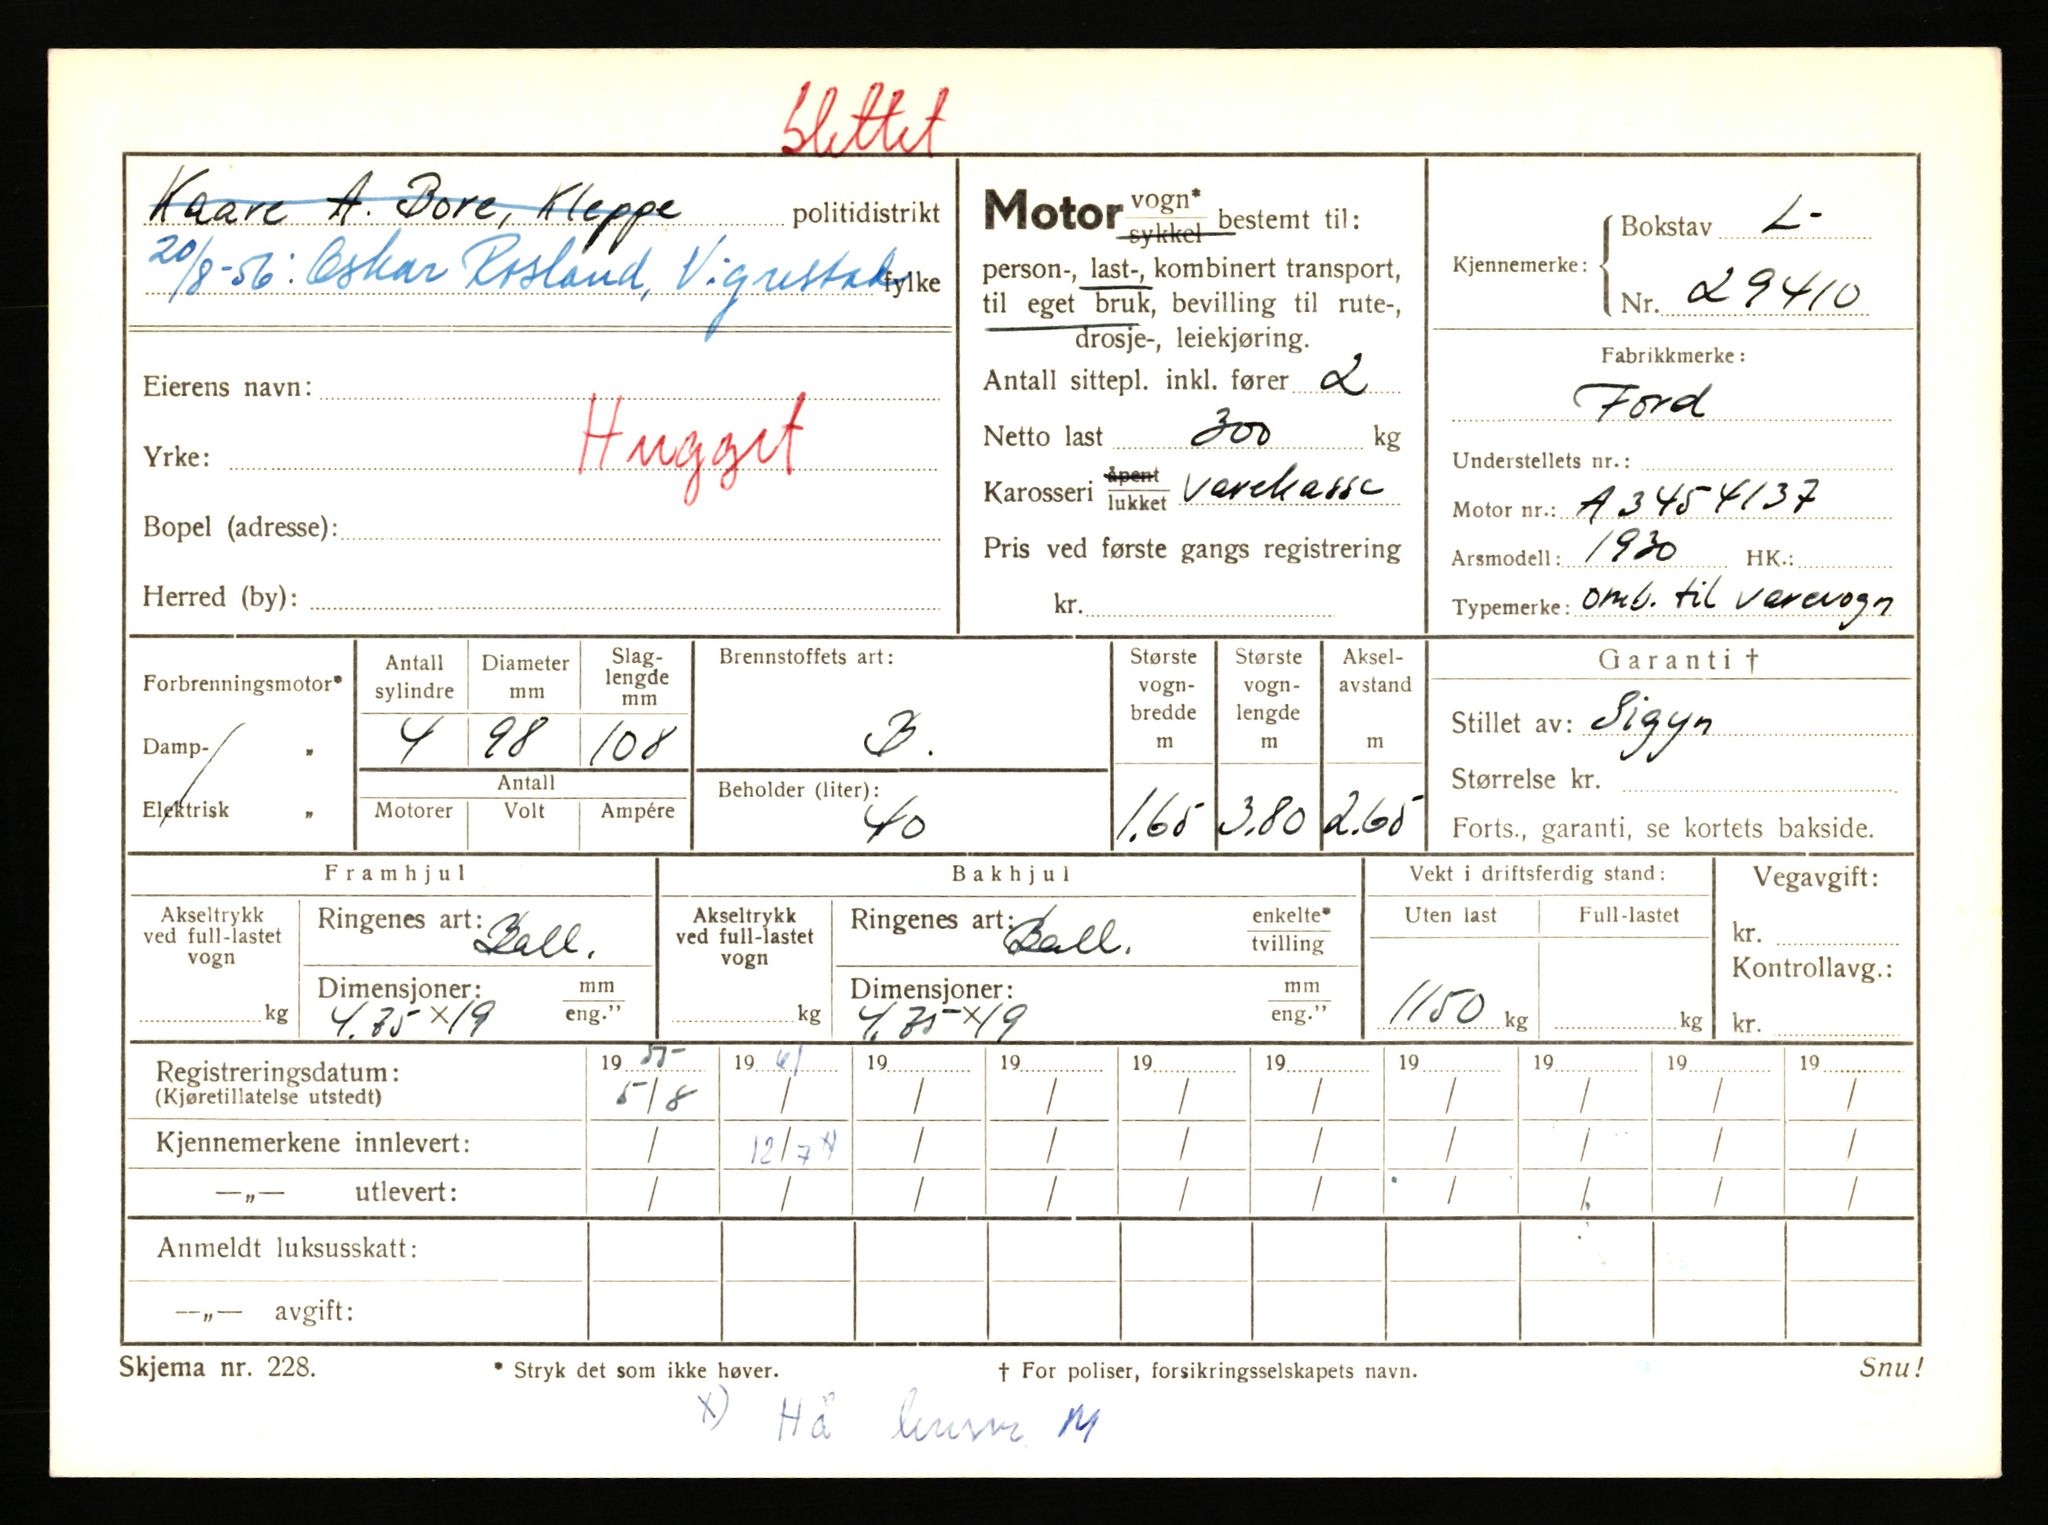 Slettet
Kaare A. Bore, Kleppe politidistrikt
20/8-56: Oskar Rosland, Vigrestad fylke
Eierens navn:
Hugget
Yrke:
Bopel (adresse):
Herred (by):
Motor vogn* sykkel bestemt til:
person-, last-, kombinert transport,
til eget bruk, bevilling til rute-,
drosje-, leiekjøring.
Antall sittepl. inkl. fører 2
Netto last 300 kg
Karosseri åpent lukket varekasse
Pris ved første gangs registrering
kr.
Kjennemerke: Bokstav L-
Nr. 29410
Fabrikkmerke:
Ford
Understellets nr.:
Motor nr.: A3454137
Arsmodell: 1930 HK.:
Typemerke: omb. til varevogn
Forbrenningsmotor*
Damp- "
Elektrisk "
Antall sylindre
Diameter mm
Slag-lengde mm
4 98 108
Antall
Motorer Volt Ampére
Brennstoffets art:
B.
Beholder (liter):
40
Største vogn-bredde m
1.65
Største vogn-lengde m
3.80
Aksel-avstand m
2.65
Garanti †
Stillet av: Sigyn
Størrelse kr.
Forts., garanti, se kortets bakside.
Framhjul
Akseltrykk ved full-lastet vogn
kg
Ringenes art: Ball.
Dimensjoner: mm eng."
4.75 × 19
Bakhjul
Akseltrykk ved full-lastet vogn
kg
Ringenes art: Ball. enkelte* tvilling
Dimensjoner: mm eng."
4.75 × 19
Vekt i driftsferdig stand:
Uten last Full-lastet
1150 kg kg
Vegavgift:
kr.
Kontrollavg.:
kr.
Registreringsdatum: 19 55 19 61 19 19 19 19 19 19 19 19
(Kjøretillatelse utstedt) 5/8 / / / / / / / / /
Kjennemerkene innlevert: / 12/7 x) / / / / / / / /
—„— utlevert: / / / / / / / / / /
Anmeldt luksusskatt:
—„— avgift:
Skjema nr. 228. * Stryk det som ikke høver. † For poliser, forsikringsselskapets navn. Snu!
x) Hå